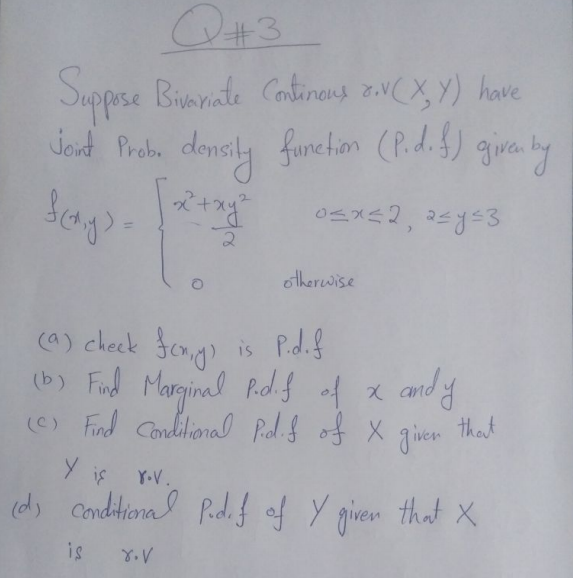 Q#3
Suppose Bivariate Continous r.v(X,Y) have
joint Prob. density function (P.d.f) given by
f(x,y) = [ x²+xy²/2 0≤x≤2, 2≤y≤3
0 otherwise
(a) check f(x,y) is P.d.f
(b) Find Marginal P.d.f of x and y
(c) Find Conditional P.d.f of X given that
Y is r.v.
(d) Conditional P.d.f of Y given that X
is r.v